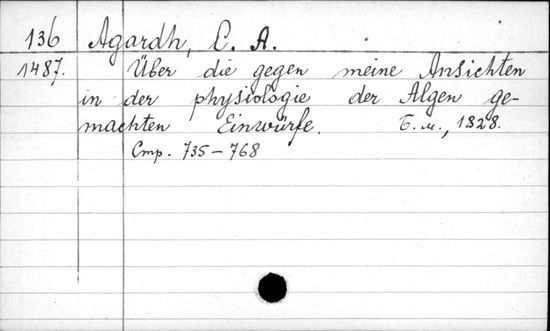 136 Agardh, C. A.
1487. Über die gegen meine Ansichten
in der physiologie der Algen ge-
machten Einwürfe. Б. м., 1828.
Стр. 735-768